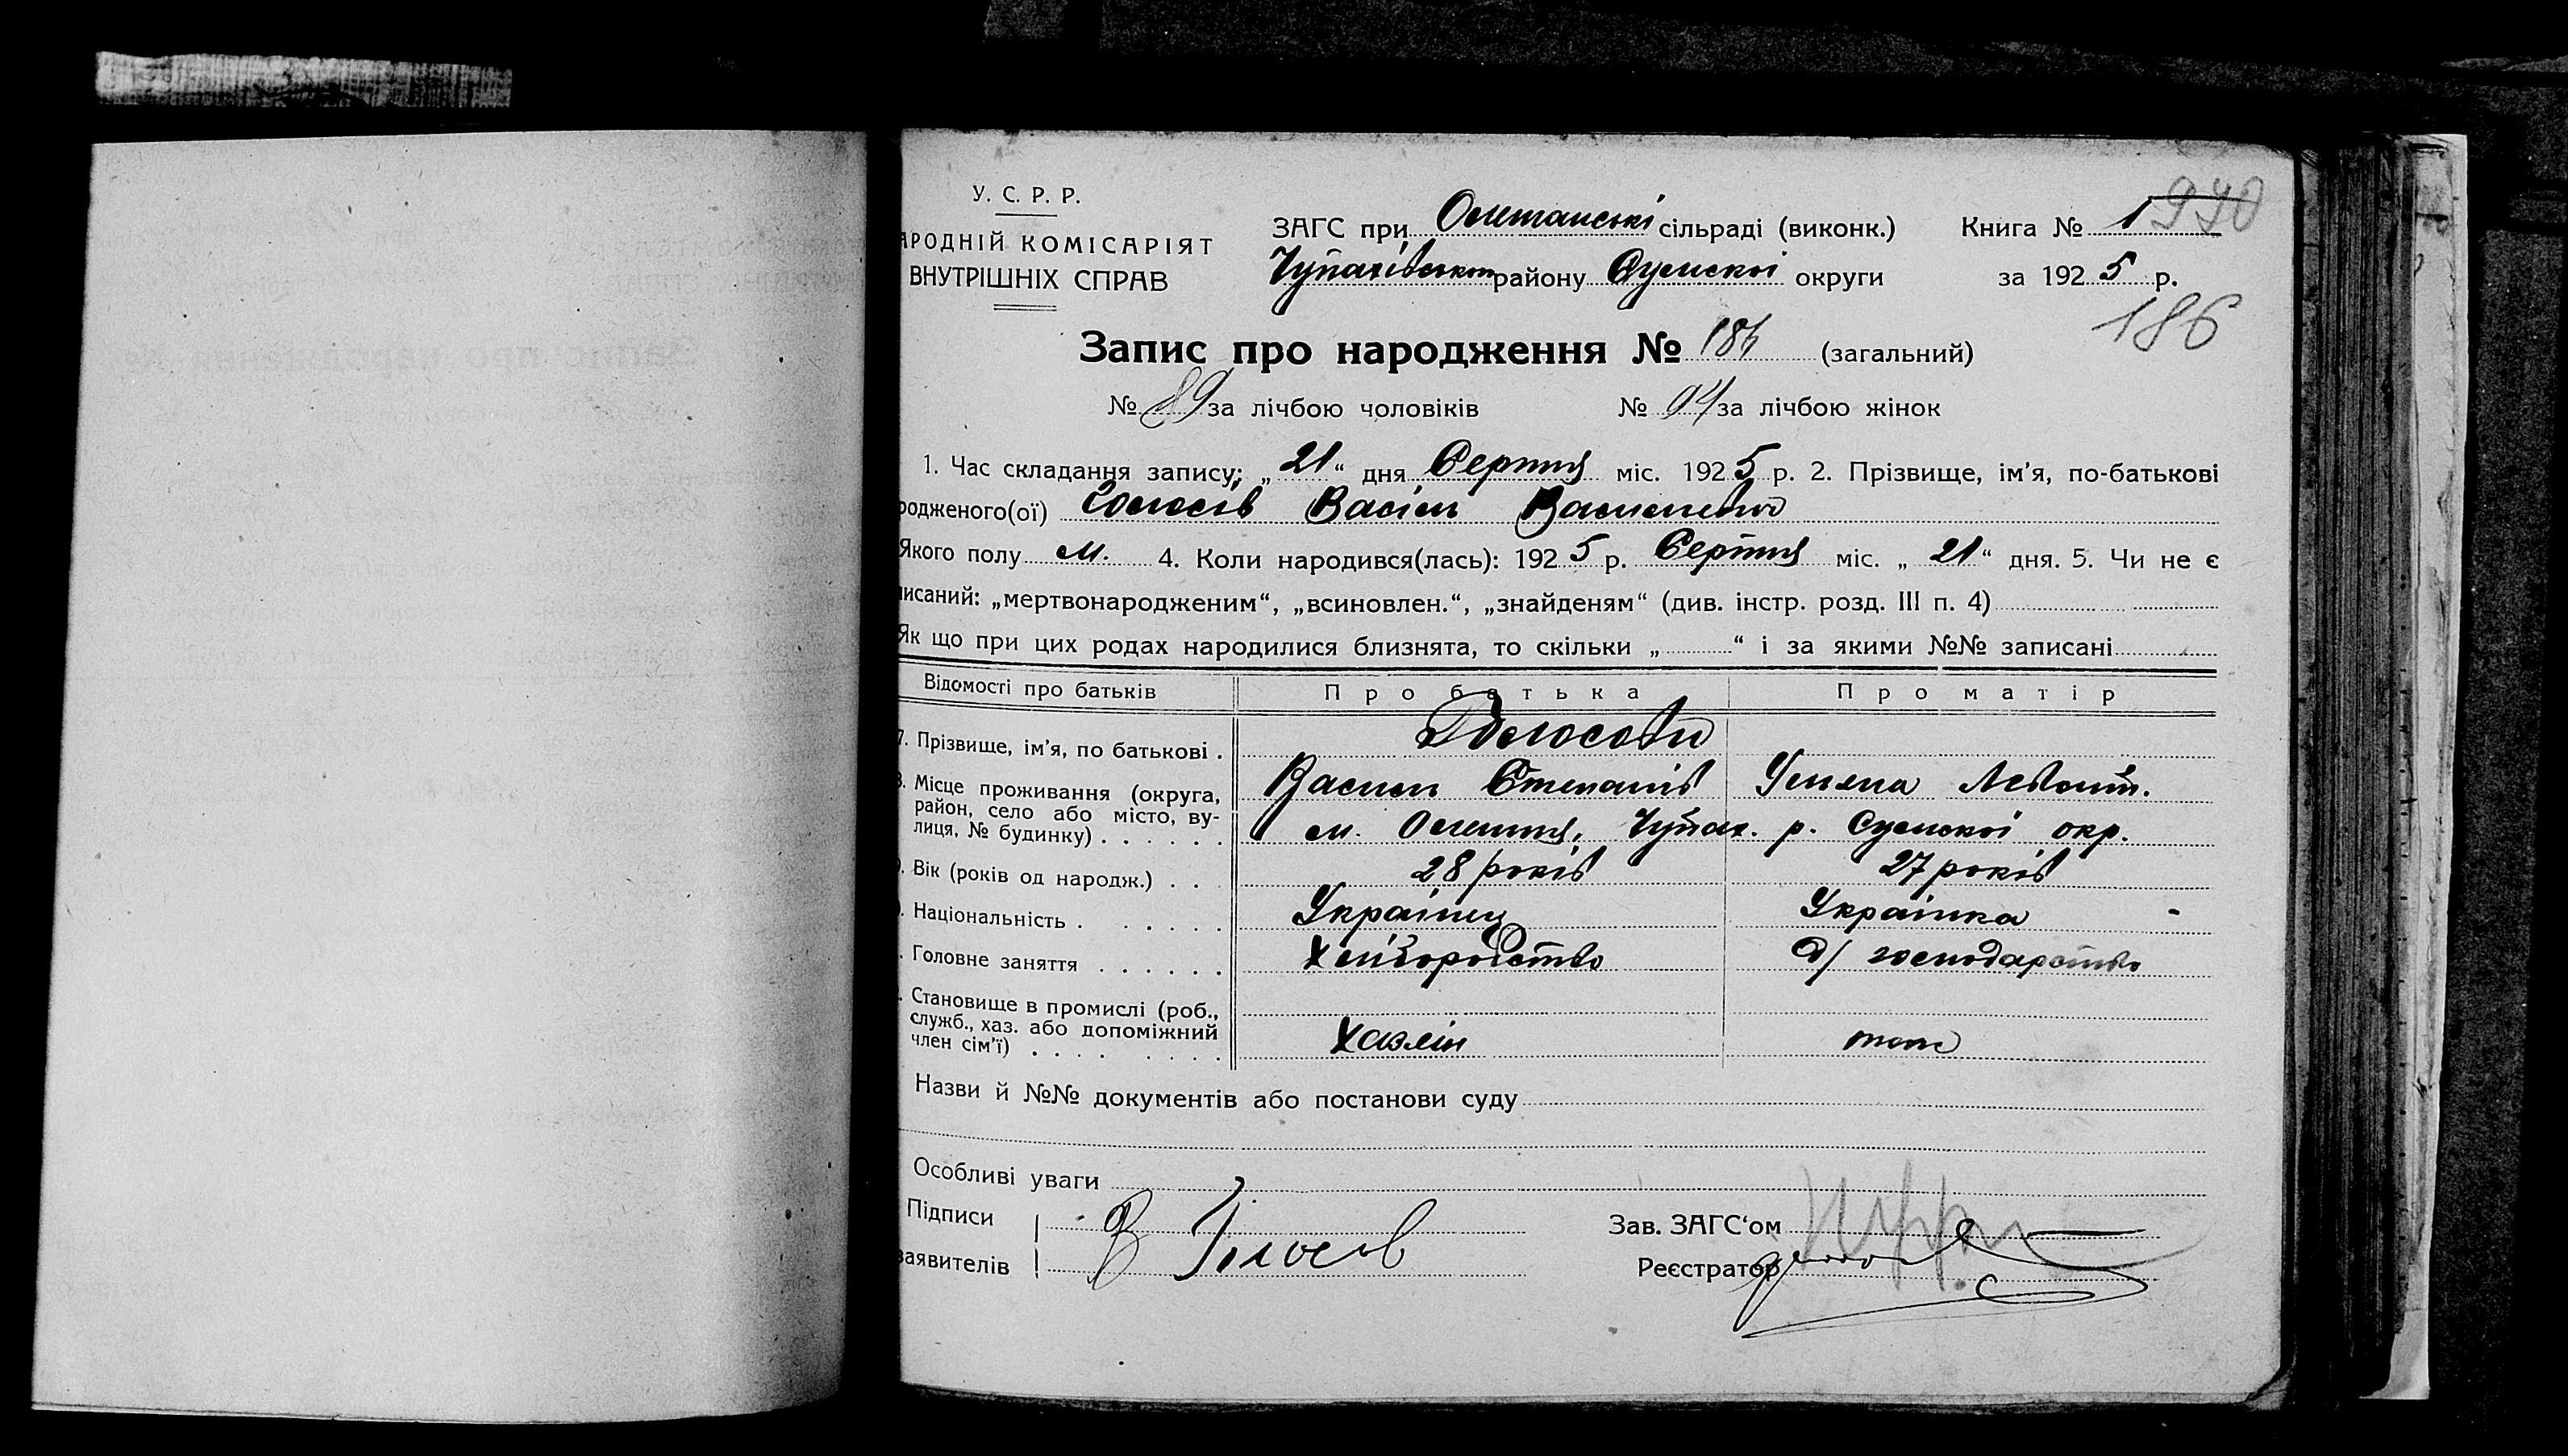 У. С. Р. Р.
АРОДНІЙ КОМІСАРІЯТ
ВНУТРІШНІХ СПРАВ
ЗАГС при Олешанські сільраді (виконк.)
Чупахівського району Сумскої округи
Книга № 1 940
за 1925 р.
186
Запис про народження № 186 (загальний)
№ 89 за лічбою чоловіків № 94 за лічбою жінок
1. Час складання запису: „21“ дня Серпня міс. 1925 р. 2. Прізвище, ім’я, по-батькові
родженого(ої) Голосів Васіль Васильевич
Якого полу м. 4. Коли народився(лась): 1925 р. Серпня міс. „21“ дня. 5. Чи не є
писаний: „мертвонародженим“, „всиновлен.“, „знайденям“ (див. інстр. розд. III п. 4)
Як що при цих родах народилися близнята, то скільки „ “ і за якими №№ записані
Відомості про батьків Про батька Про матір
7. Прізвище, ім’я, по батькові . Голосови
Василь Степанів Уляна Левонт.
8. Місце проживання (округа, район, село або місто, вулиця, № будинку) . . . . . . м. Олешня, Чупах. р. Сумскої окр.
Вік (років од народж.) . . . 28 років 27 років
Національність . . . . . . Українц Українка
Головне заняття . . . . . . Хліборобство д/ господарство
Становище в промислі (роб., служб., хаз. або допоміжний член сім’ї) . . . . . . . . Хазяін тож
Назви й №№ документів або постанови суду
Особливі уваги
Підписи
заявителів
В Голосов
Зав. ЗАГС‘ом
Реєстратор